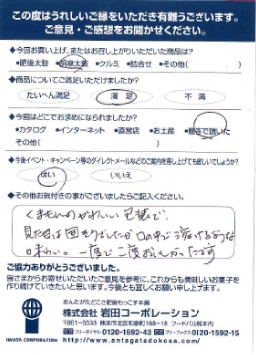 この度はうれしいご縁をいただき有難うございます。
ご意見・ご感想をお聞かせください。
◆今回お買い上げ、またはお召し上がりいただいた商品は?
•肥後太鼓 •胡麻太鼓 •クルミ •詰合せ •その他( )
◆商品についてご満足いただけましたか?
たいへん満足 満足 不満
◆今回はどこでお求めになられましたか?
•カタログ •インターネット •直営店 •お土産 •贈答で頂いた
•その他( )
◆今後イベント・キャンペーン等のダイレクトメールなどのご案内を差し上げても宜しいでしょうか?
はい いいえ
◆その他お気付きの事がございましたらご記入ください。
くまモンのかわいい包装で、
見た目は固そうだったが口の中で溶けるような
味わい。一度で二度おいしかったです
ご協力ありがとうございました。
皆さまからお寄せいただいたご意見を参考に、これからも美味しいお菓子を
作り続けていきたいと思います。今後とも宜しくお願い申し上げます。
おんたがたどこどこ肥後もっこす本舗
株式会社 岩田コーポレーション
IWATA CORPORATION
フリーダイヤル 0120-1592-43 フリーファックス 0120-1592-15
http://www.antagatadokosa.com/